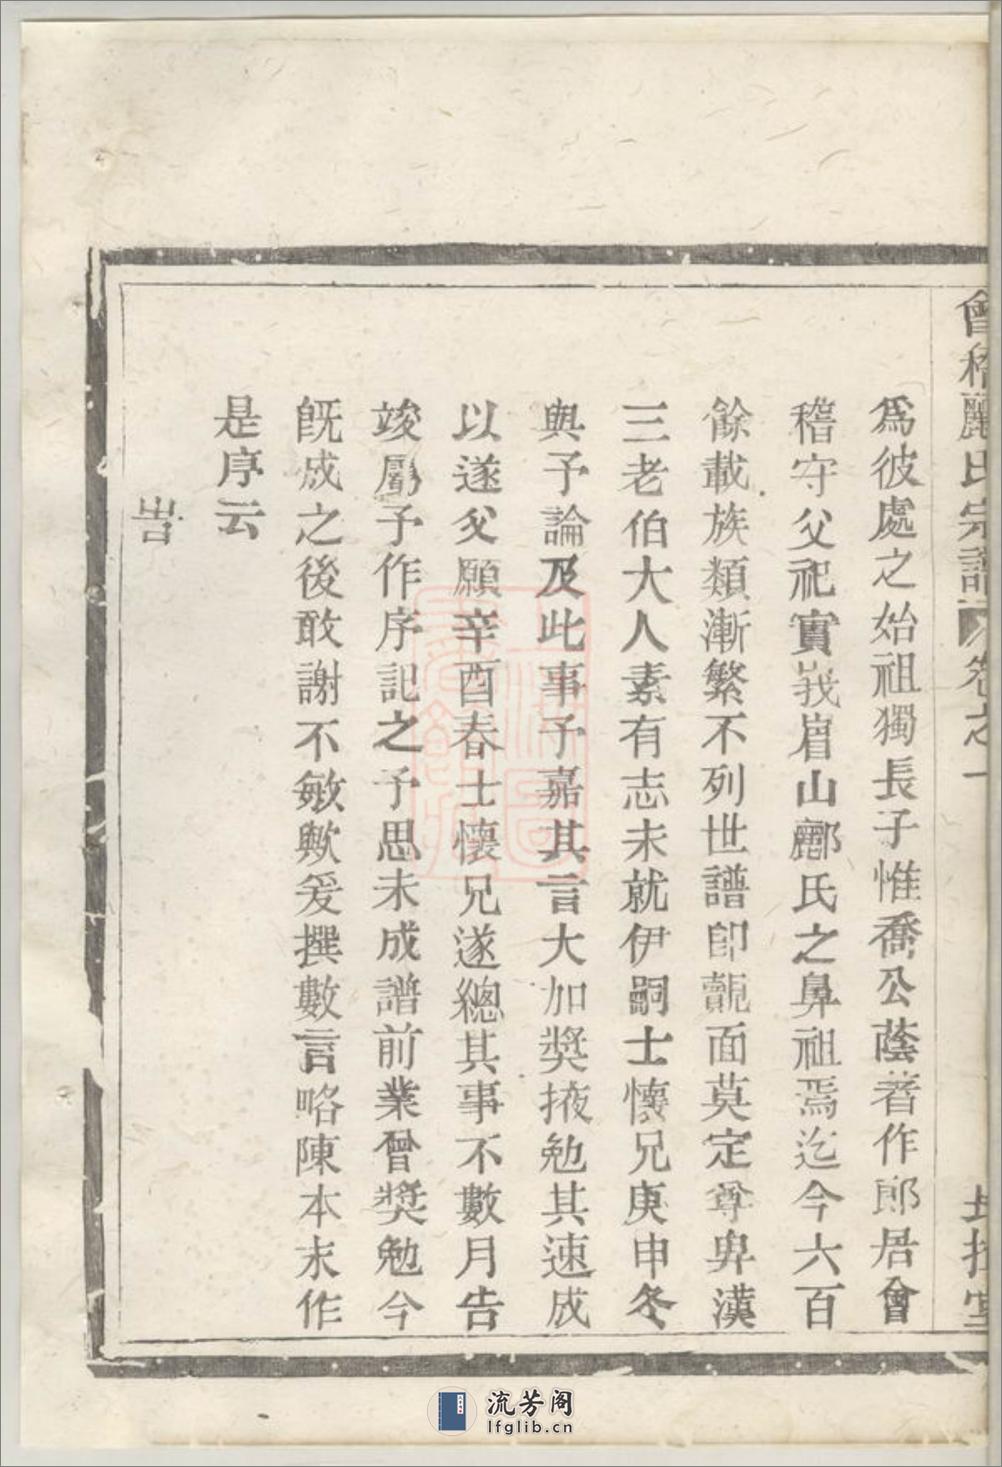 會稽酈氏宗譜 卷之一
為彼處之始祖獨長子惟喬公蔭著作郎居會
稽守父祀實峩眉山酈氏之鼻祖焉迄今六百
餘載族類漸繁不列世譜即覿面莫定尊卑漢
三老伯大人素有志未就伊嗣士懷兄庚申冬
與予論及此事予嘉其言大加獎掖勉其速成
以遂父願辛酉春士懷兄遂總其事不數月告
竣屬予作序記之予思未成譜前業曾獎勉今
旣成之後敢謝不敏歟爰撰數言略陳本末作
是序云
旹
流芳阁
lfglib.cn